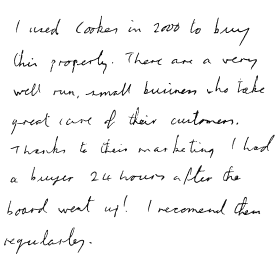 I used Cookes in 2000 to buy
this property. There are a very
well run, small business who take
great care of their customers.
Thanks to their marketing I had
a buyer 24 hours after the
board went up! I recomend them
regularly.